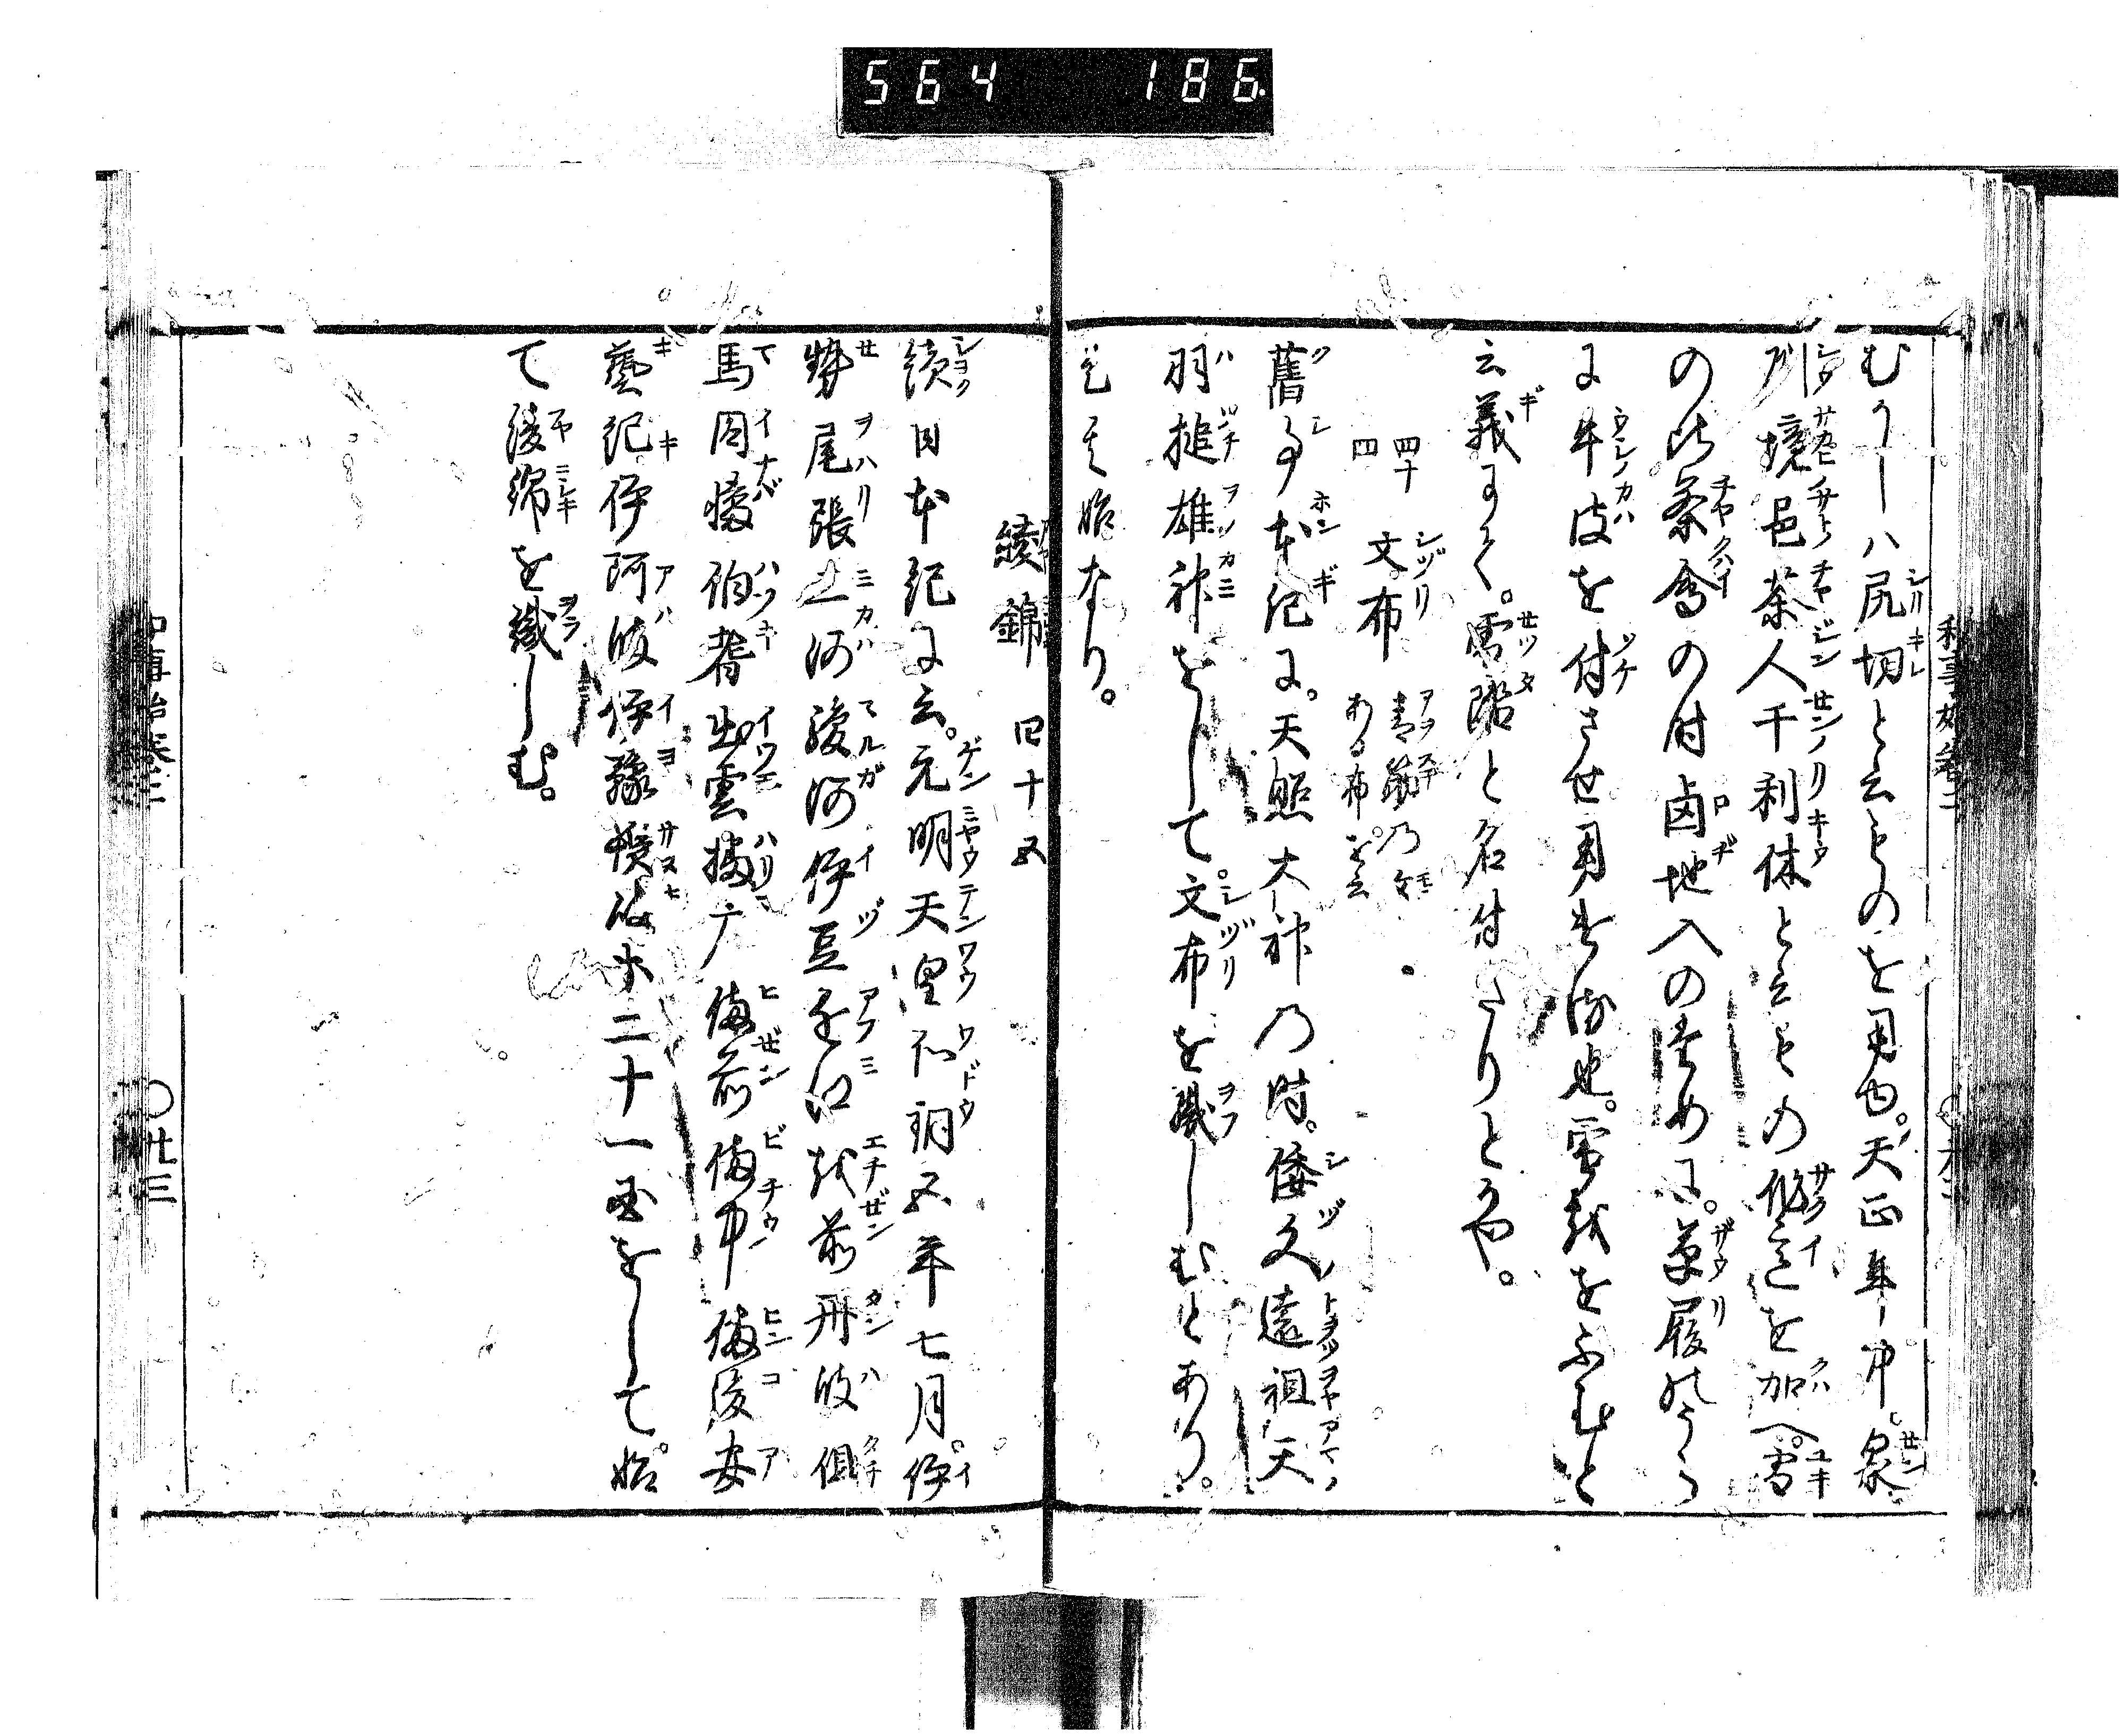 564 186
むかしハ尻切と云ものを用ゆ。天正年中。泉
州境邑茶人千利休と云もの作意を加へ。雪
の比茶會の付鹵地入のために。草履のうら
に牛皮を付させ用ひ給也。雪地をふむと
云義にて。雪踏と名付たりとかや。
四十四 文布 青筋乃文ある布を云
舊事本紀に。天照大神乃時。倭文遠祖天
羽槌雄神をして。文布を織しむとあり。
是其始なり。
綾錦 四十五
續日本紀に云。元明天皇和銅五年七月。伊
勢尾張三河駿河伊豆近江越前丹波但
馬因幡伯耆出雲播广備前備中備後安
藝紀伊阿波伊豫讃岐等二十一国をして。始
て綾錦を織しむ。
〇廿三